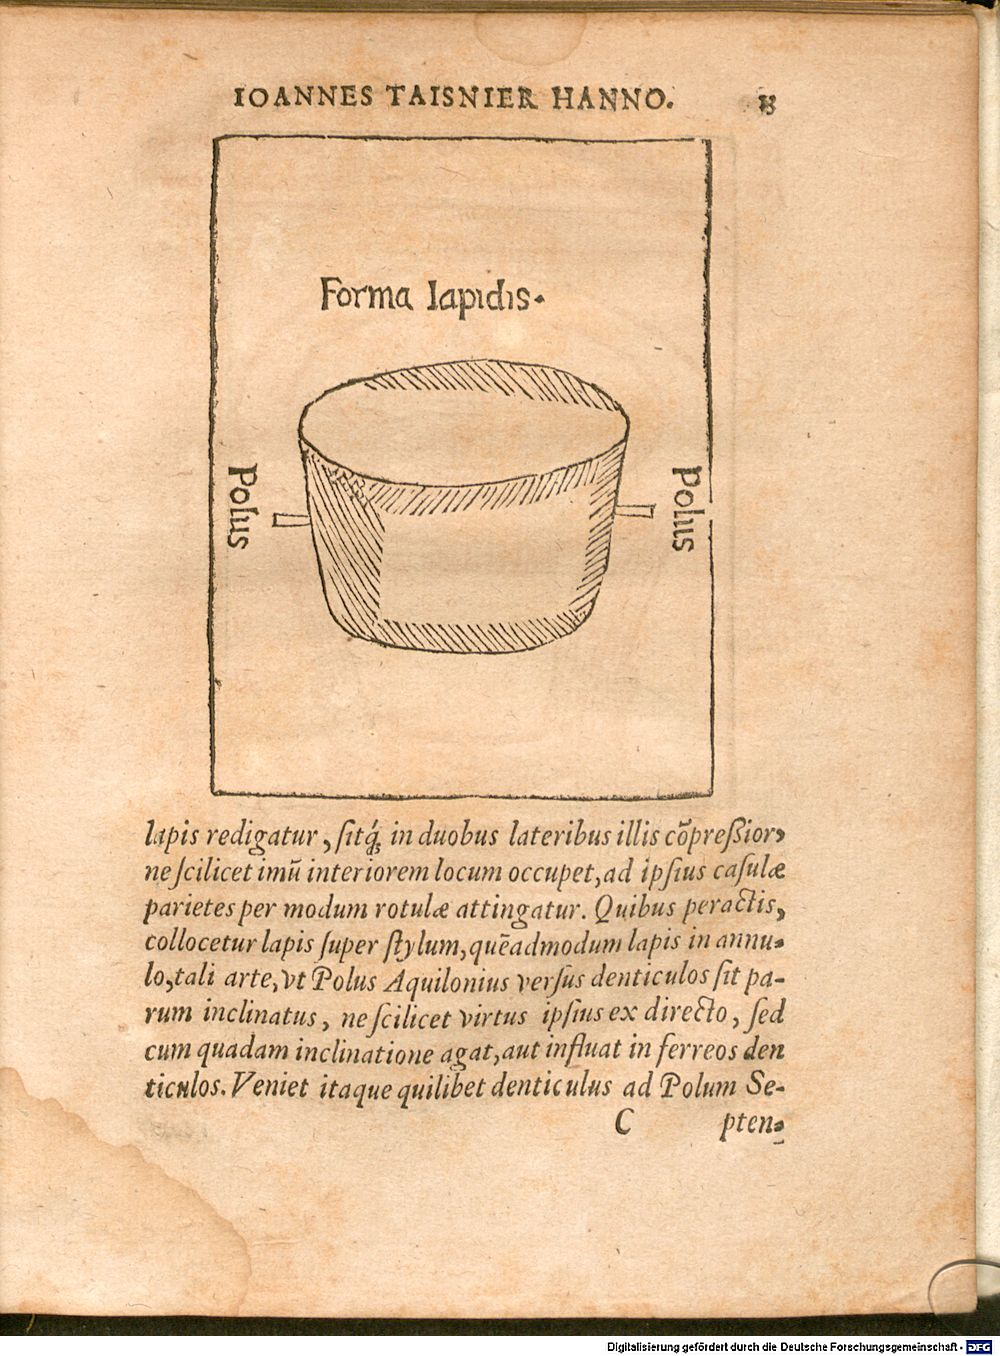 IOANNES TAISNIER HANNO.
Forma lapidis.
Polus
Polus
lapis redigatur, ſitq́ʒ in duobus lateribus illis cōpreßior,
ne ſcilicet imū interiorem locum occupet, ad ipſius caſulæ
parietes per modum rotulæ attingatur. Quibus peractis,
collocetur lapis ſuper ſtylum, quēadmodum lapis in annu-
lo, tali arte, vt Polus Aquilonius verſus denticulos ſit pa-
rum inclinatus, ne ſcilicet virtus ipſius ex directo, ſed
cum quadam inclinatione agat, aut influat in ferreos den
ticulos. Veniet itaque quilibet denticulus ad Polum Se-
C pten-
Digitalisierung gefördert durch die Deutsche Forschungsgemeinschaft - DFG